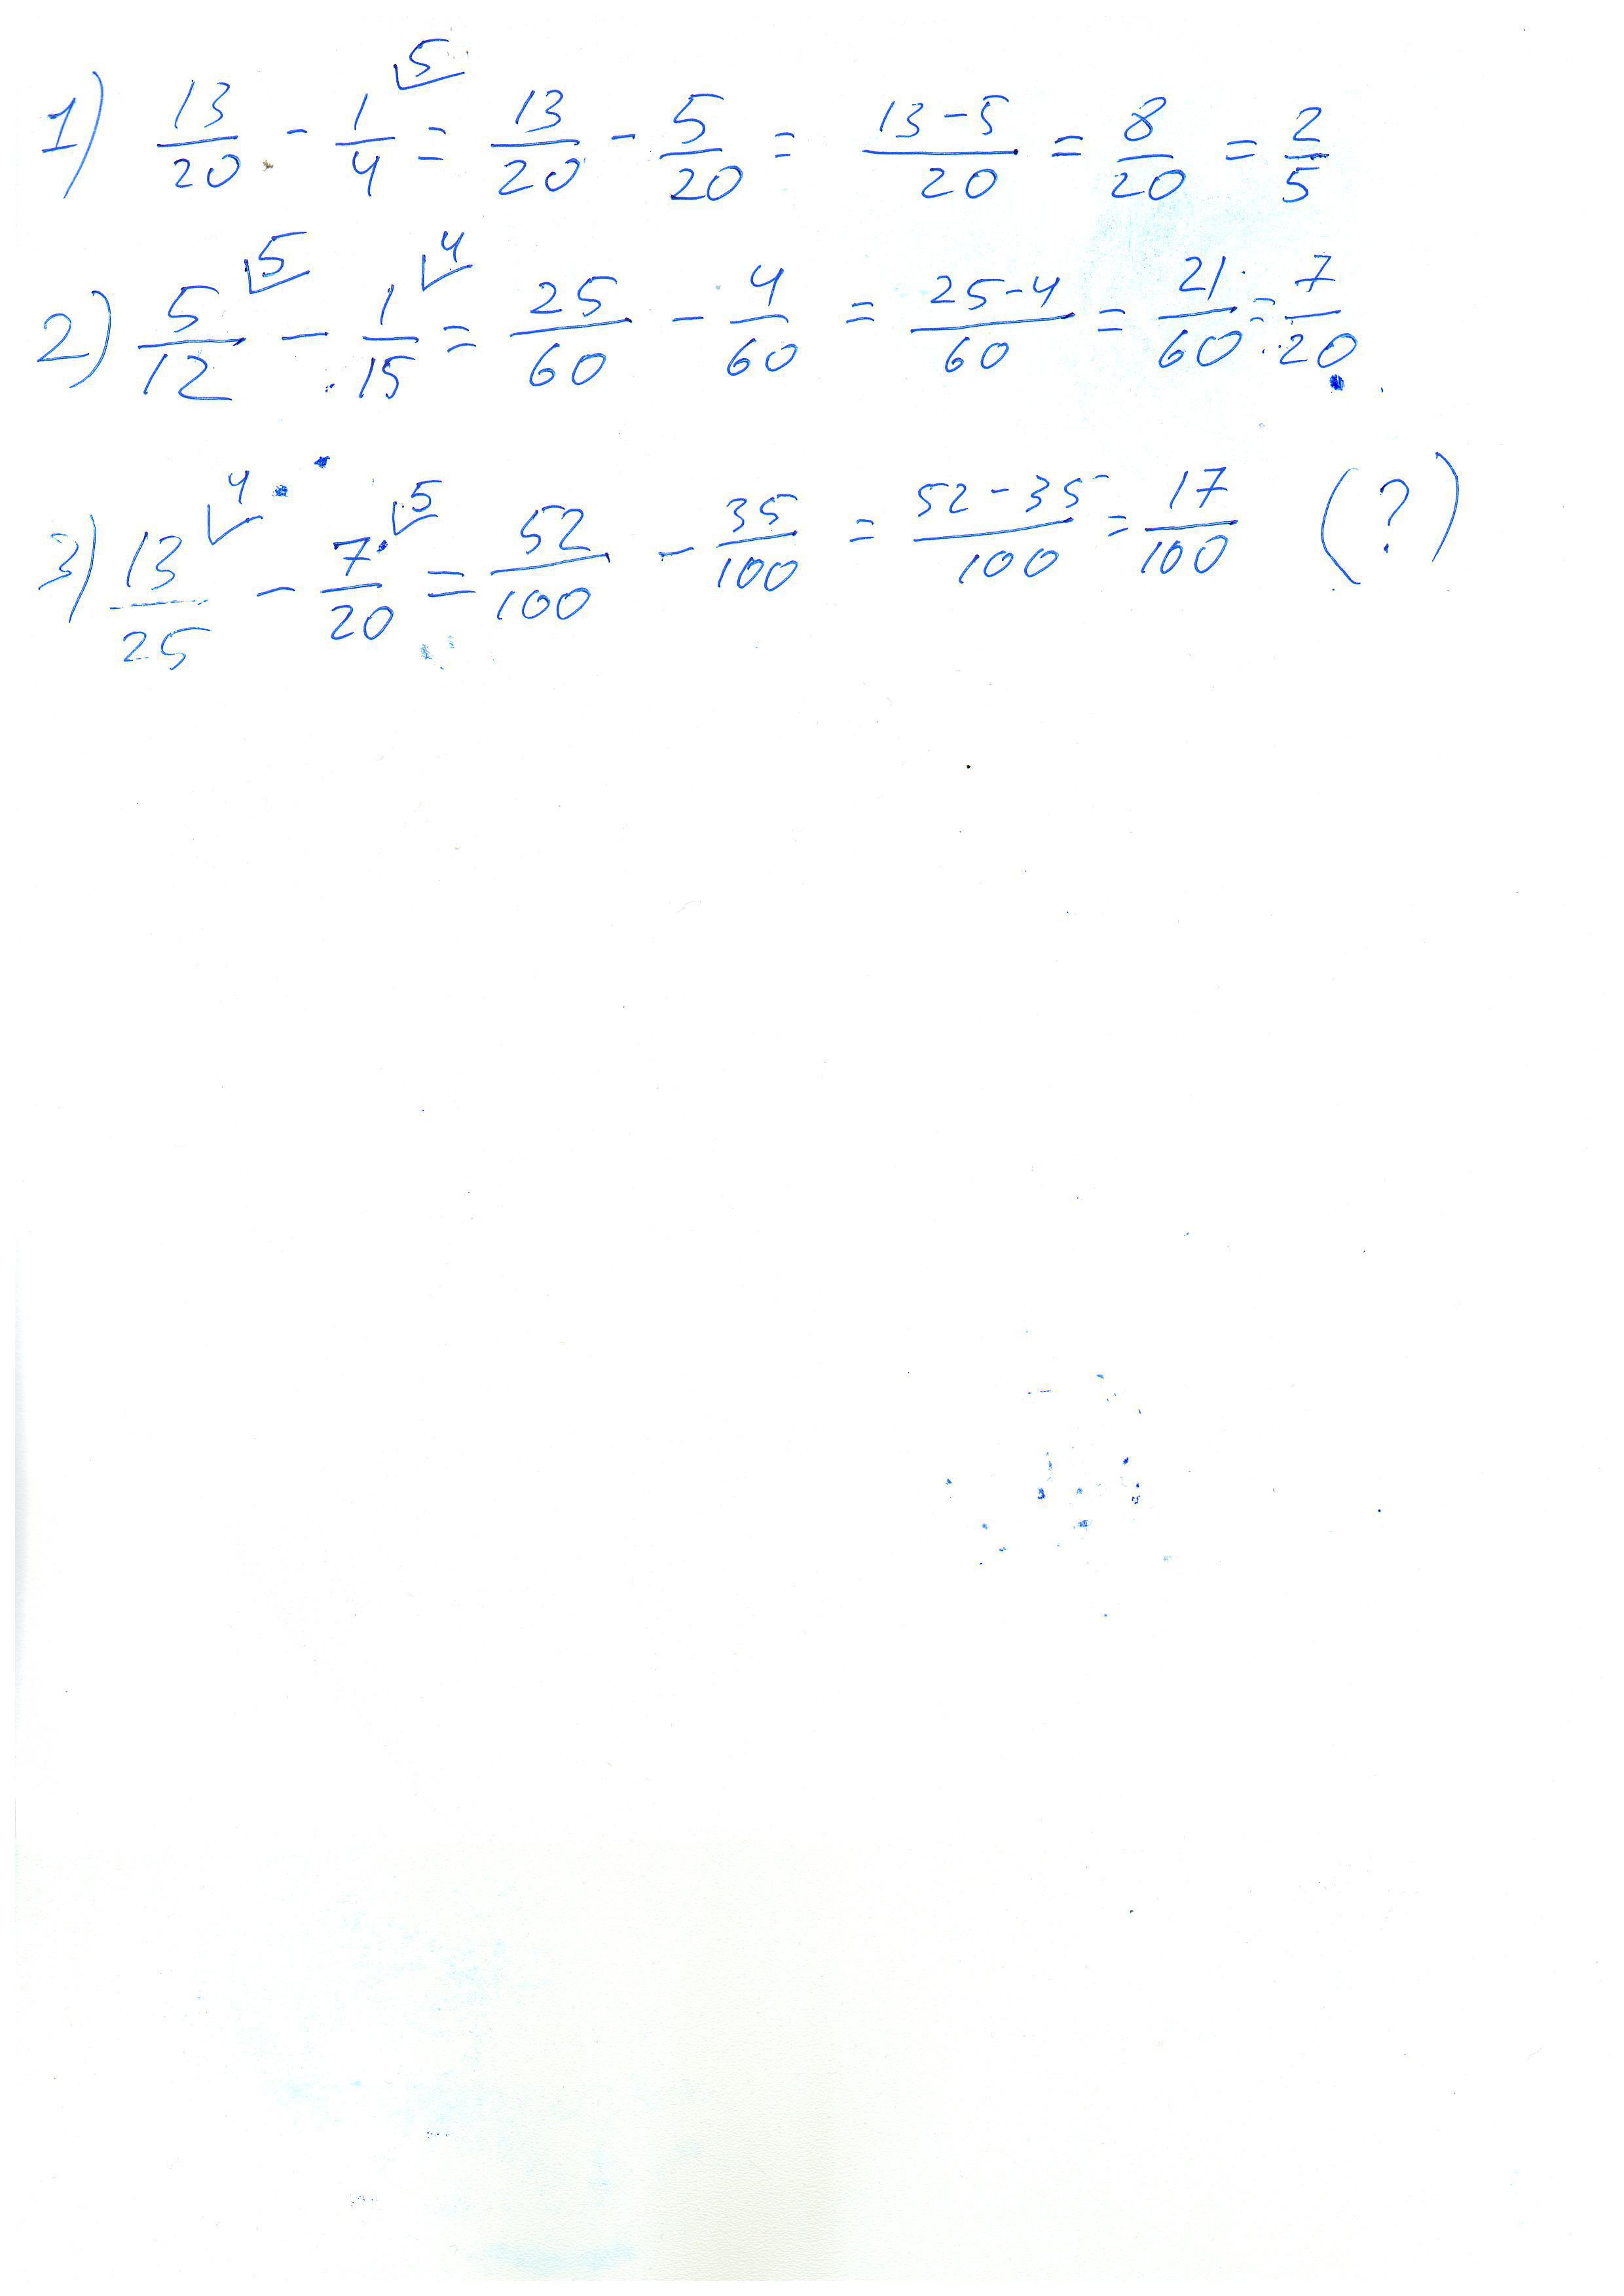 1) 13/20 - 1/4 ⌄5 = 13/20 - 5/20 = (13-5)/20 = 8/20 = 2/5
2) 5/12 ⌄5 - 1/15 ⌄4 = 25/60 - 4/60 = (25-4)/60 = 21/60 = 7/20
3) 13/25 ⌄4 - 7/20 ⌄5 = 52/100 - 35/100 = (52-35)/100 = 17/100 (?)